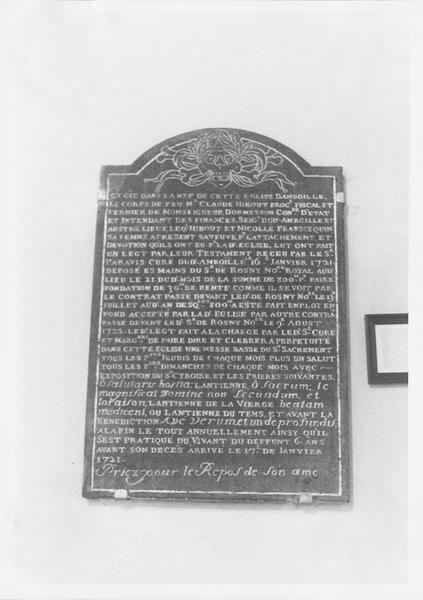 CY GIT DANS LA NEF DE CETTE EGLISE DAMBOILLE,
LE CORPS DE FEU Mᵉ CLAUDE HIBOUT PROCʳ FISCAL ET
FERMIER DE MONSEIGNEUR DORMESSON CONᵉʳ D'ETAT
ET INTENDANT DES FINANCES, SEIGʳ DUD. AMBOILLE ET
AUSTRES LIEUX, LEQˡ HIBOUT ET NICOLLE FRANSSEQUIN
SA FEMME APRESENT SA VEUVE Pʳ L'ATTACHEMENT ET
DEVOTION QU'ILS ONT EU Pʳ LAD. EGLISE, LUY ONT FAIT
UN LEGT PAR LEUR TESTAMENT RECEU PAR LE Sʳ
PARAVIS CURE DUD. AMBOILLE 16ᵉ JANVIER 1721
DEPOSÉ ES MAINS DU Sʳ DE ROSNY NOʳᵉ ROYAL AUD.
LIEU LE 21 DUD. MOIS DE LA SOMME DE 800ᵗ Pʳ FAIRE
FONDATION DE 30ᵗ DE RENTE COMME IL SE VOIT PAR
LE CONTRAT PASSÉ DEVANT LED. DE ROSNY NOʳᵉ LE 13ᵉ
JUILLET AUD. AN DESQˡˢ 800ᵗ A ESTÉ FAIT EMPLOY EN
FOND ACCEPTÉ PAR LAD. EGLISE PAR AUTRE CONTRA
PASSÉ DEVANT LED. Sʳ DE ROSNY NOʳᵉ LE 9ᵉ AOUST
1722. LED. LEGT FAIT A LA CHARGE PAR LED. Sʳ CURÉ
ET MARGᵉʳˢ DE FAIRE DIRE ET CLEBRER A PERPETUITÉ
DANS CETTE EGLISE UNE MESSE BASSE DU Sᵗ SACREMENT
TOUS LES Pʳˢ JEUDIS DE CHAQUE MOIS PLUS UN SALUT
TOUS LES Pʳˢ DIMANCHES DE CHAQUE MOIS AVEC
EXPOSITION DU Sᵗ CYBOIRE, ET LES PRIERES SUIVANTES,
O salutaris hostia; L'ANTIENNE, O sacrum; le
magnificat Domine non secundum, et
l'oraison, L'ANTIENNE DE LA VIERGE beatam
me dicent, OU L'ANTIENNE DU TEMS, ET AVANT LA
BENEDICTION Ave verum et un de profundis
A LA FIN LE TOUT ANNUELLEMENT AINSY QU'IL
S'EST PRATIQUÉ DU VIVANT DU DEFFUNT 6 ANS
AVANT SON DECES ARRIVÉ LE 17ᵉ DE IANVIER
1721.
Priez pour le Repos de son ame